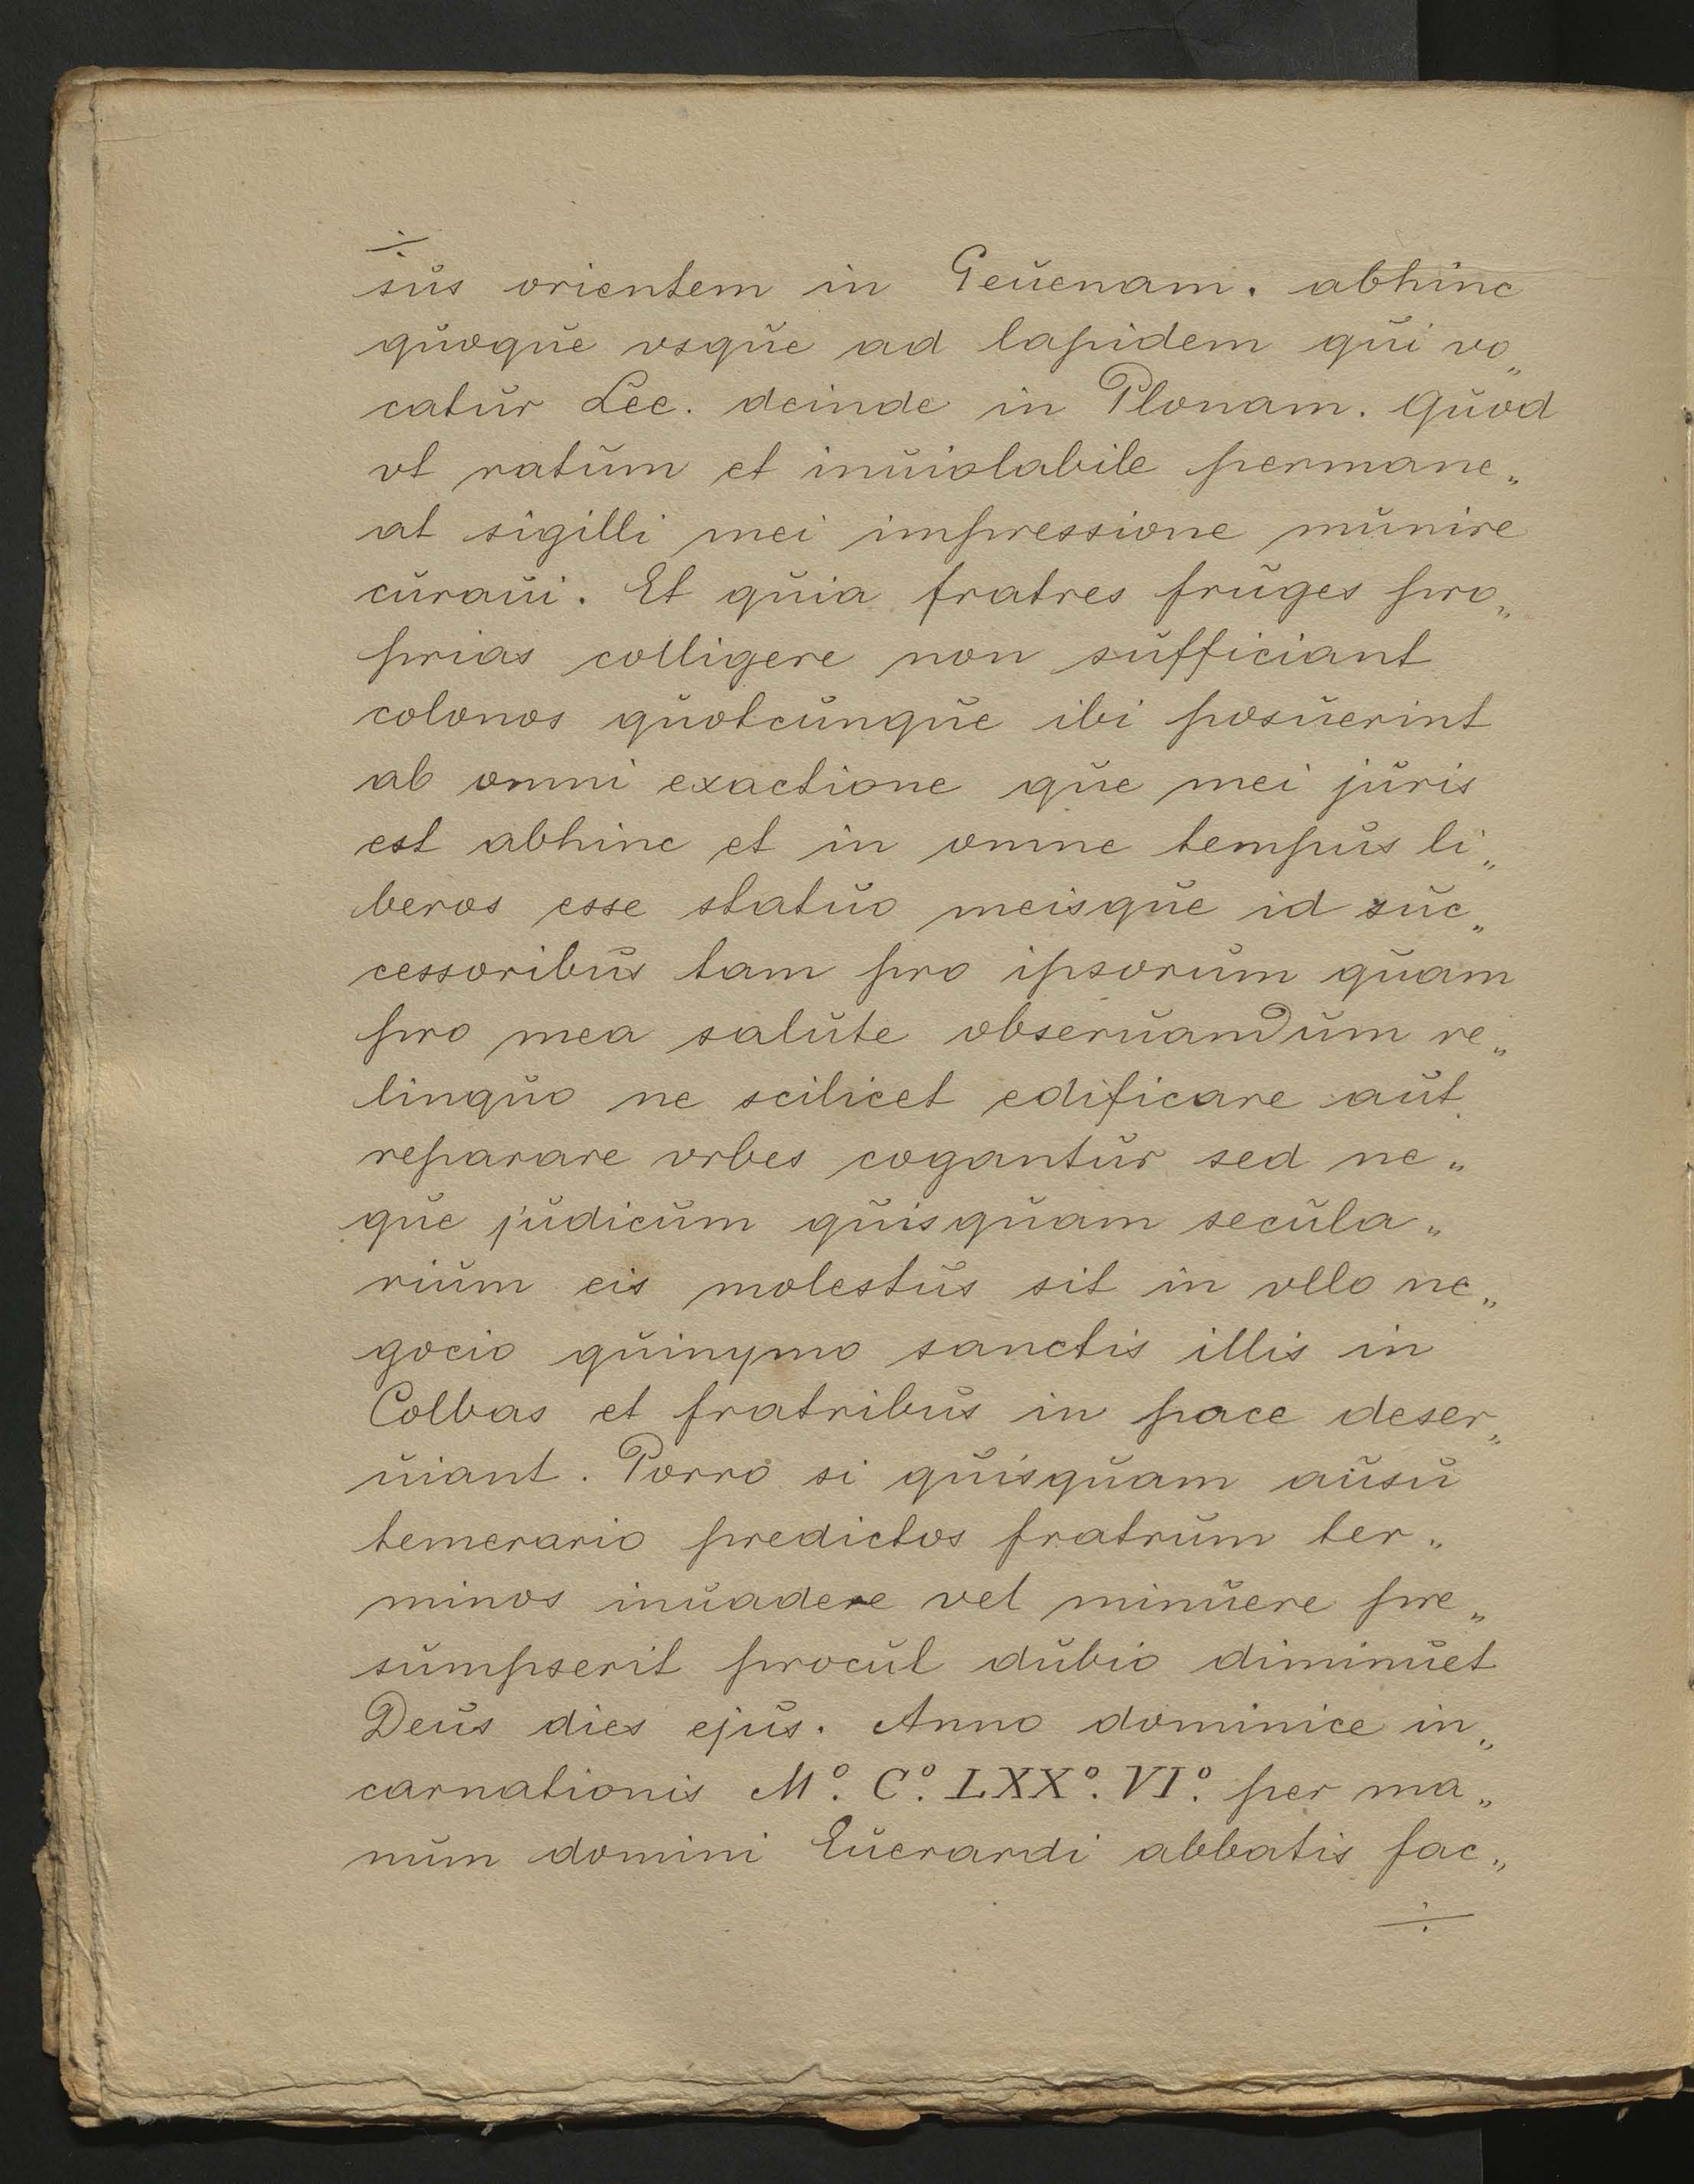 ÷
sus orientem in Geuenam. abhinc
quoque vsque ad lapidem qui vo„
catur Lec. deinde in Plonam. Quod
vt ratum et inuiolabile permane„
at sigilli mei impressione munire
curaui. Et quia fratres fruges pro„
prias colligere non sufficiant
colonos quotcunque ibi posuerint
ab omni exactione que mei juris
est abhinc et in omne tempus li„
beros esse statuo meisque id suc„
cessoribus tam pro ipsorum quam
pro mea salute obseruandum re„
linquo ne scilicet edificare aut
reparare vrbes cogantur sed ne„
que judicum quisquam secula„
rium eis molestus sit in vllo ne„
gocio quinymo sanctis illis in
Colbas et fratribus in pace deser„
uiant. Porro si quisquam ausu
temerario predictos fratrum ter„
minos inuadere vel minuere pre„
sumpserit procul dubio diminuet
Deus dies ejus. Anno dominice in„
carnationis Mº. Cº. LXXº. VIº. per ma„
num domini Euerardi abbatis fac„
÷